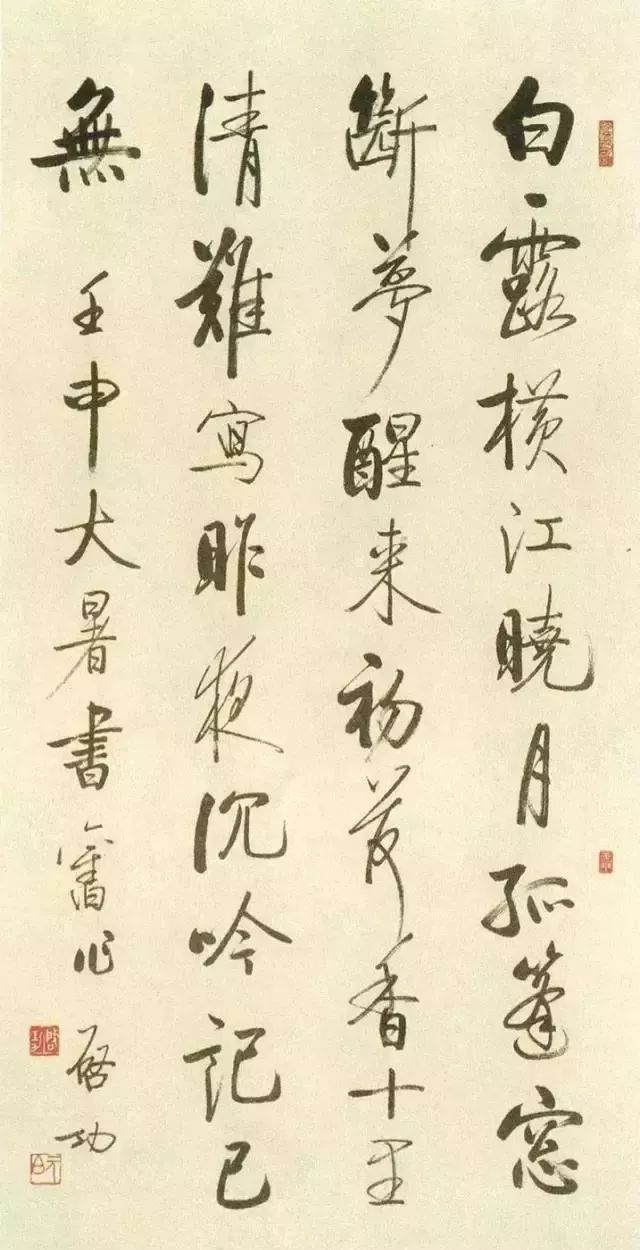 白露横江曉月孤篷窓
斷夢醒来初荷香十里
清難寫昨夜沉吟記已
無 壬申大暑書舊作 啓功
啓功
元白